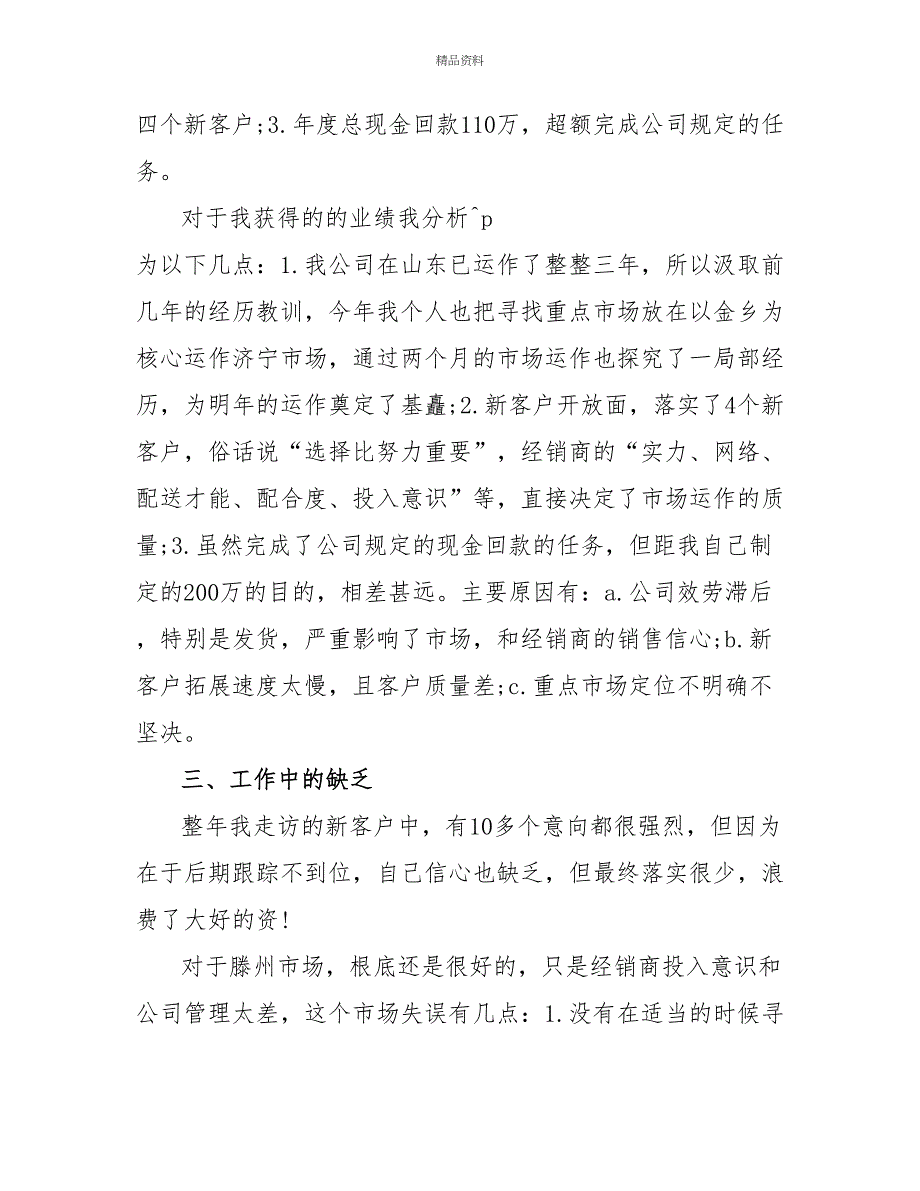 精品资料
四个新客户;3.年度总现金回款110万，超额完成公司规定的任
务。
对于我获得的的业绩我分析^p
为以下几点：1.我公司在山东已运作了整整三年，所以汲取前
几年的经历教训，今年我个人也把寻找重点市场放在以金乡为
核心运作济宁市场，通过两个月的市场运作也探究了一局部经
历，为明年的运作奠定了基矗;2.新客户开放面，落实了4个新
客户，俗话说“选择比努力重要”，经销商的“实力、网络、
配送才能、配合度、投入意识”等，直接决定了市场运作的质
量;3.虽然完成了公司规定的现金回款的任务，但距我自己制
定的200万的目的，相差甚远。主要原因有：a.公司效劳滞后
，特别是发货，严重影响了市场，和经销商的销售信心;b.新
客户拓展速度太慢，且客户质量差;c.重点市场定位不明确不
坚决。
三、工作中的缺乏
整年我走访的新客户中，有10多个意向都很强烈，但因为
在于后期跟踪不到位，自己信心也缺乏，但最终落实很少，浪
费了大好的资!
对于滕州市场，根底还是很好的，只是经销商投入意识和
公司管理太差，这个市场失误有几点：1.没有在适当的时候寻